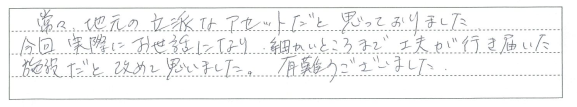 常々、地元の立派なアセットだと思っておりました
今回実際にお世話になり、細かいところまで工夫が行き届いた
施設だと改めて思いました。有難うございました.